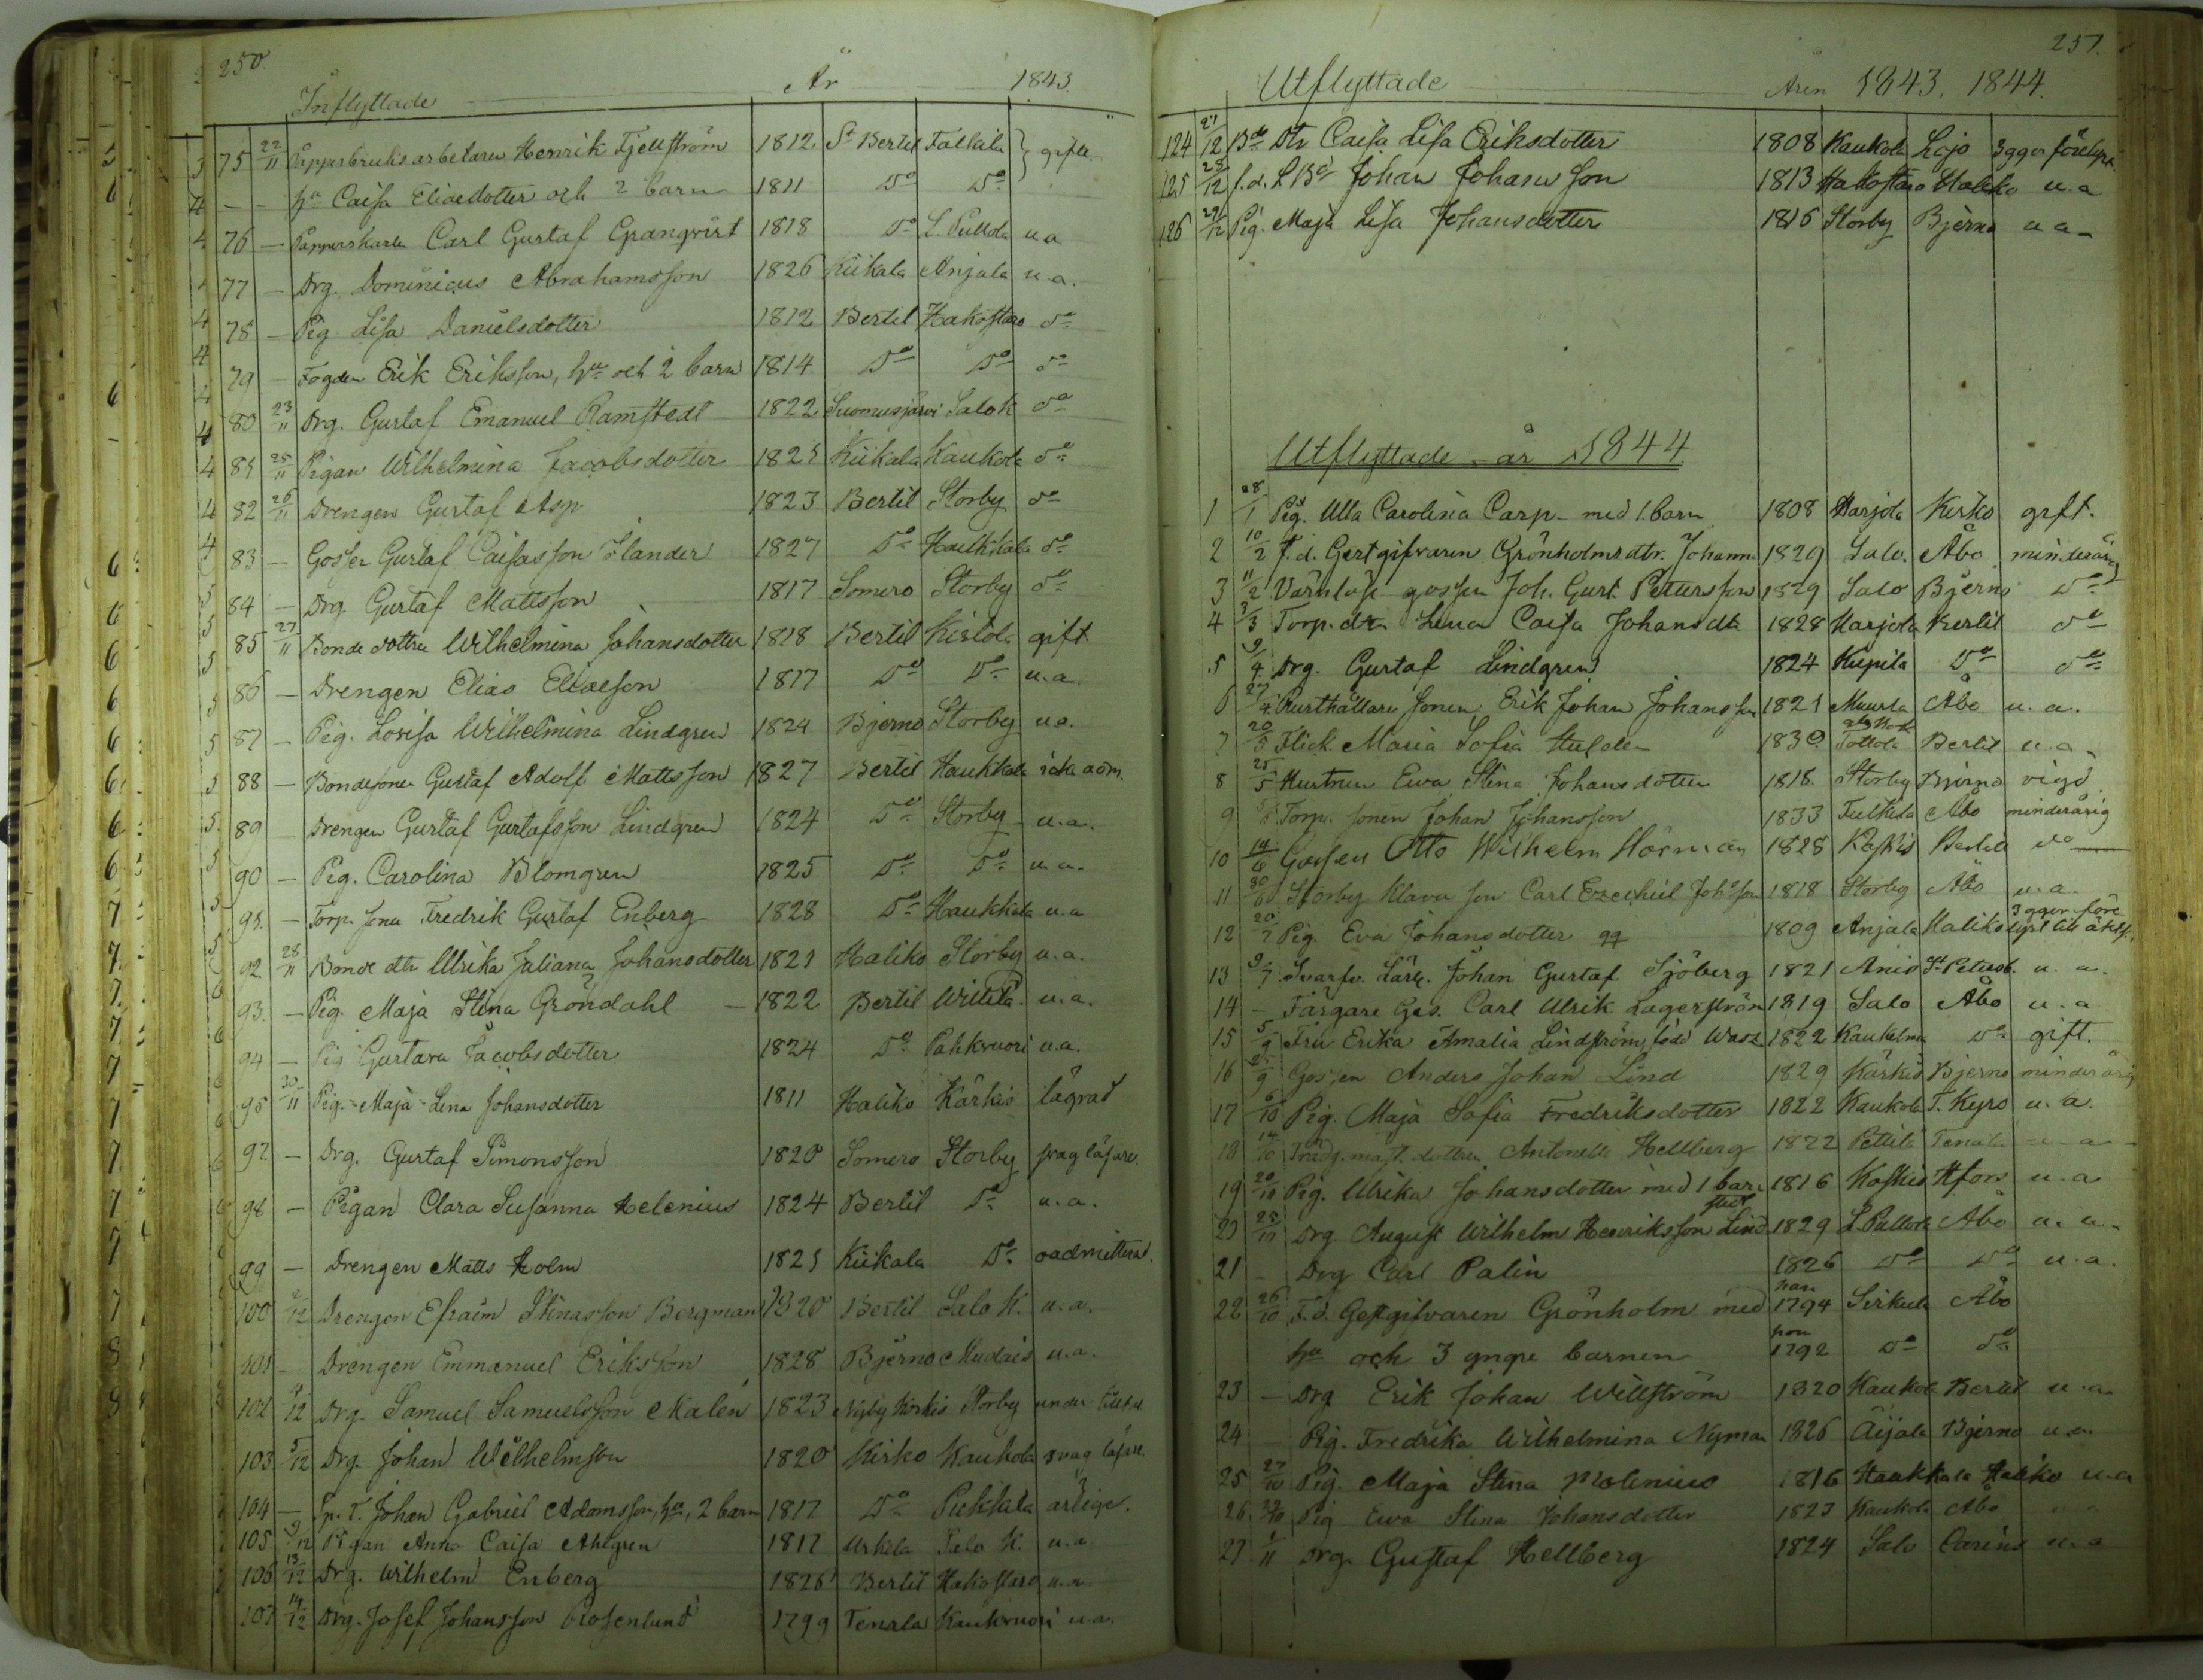 250.
Inflyttade År 1843.
75 22/11 Papparbruks arbetaren Henrik Fjellström 1812 St Bertil } gifte
- - hu Caisa Eliædotter och 2 barn 1811 Do Do
76 - Carl Gustaf Granqvist 1818 Do L. Pullola u a
77 - Drg. Dominicus Abrahamsson 1826 Kiikala Anjala u.a.
78 - Pig Lisa Danielsdotter 1812 Bertil Hakostaro do
79 - Fogden Erik Eriksson, hu och 2 barn 1814 Do Do do
80 23/11 Drg. Gustaf Emanuel Ramstedt 1822 Suomusjärvi Salo K do
81 25/11 Pigan Wilhelmina Jacobsdotter 1825 Kiikala Kaukola do
82 26/11 Drengen Gustaf Asp 1823 Bertil Storby do
83 - Gossen Gustaf Caisasson Flander 1827 Do do
84 - Drg Gustaf Mattsson 1817 Somero Storby do
85 27/11 Bonde dottren Wilhelmina Johansdotter 1818 Bertil Kistola gift
86 - Drengen Elias Eliæson 1817 Do Do u.a.
87 - Pig. Lovisa Wilhelmina Lindgren 1824 Bjerno Storby u a.
88 - Bondesonen Gustaf Adolf Mattsson 1827 Bertil Haukkala icke adm.
89 - Drengen Gustaf Gustafsson Lindgren 1824 Do Storby u.a.
90 - Pig. Carolina Blomgren 1825 Do Do u.a.
91. - Torp. sonen Fredrik Gustaf Enberg 1828 Do Haukkala u.a
92 28/11 Bonde dtr Ulrika Juliana Johansdotter 1821 Haliko Storby u.a.
93. - Pig. Maja Stina Gröndahl 1822 Bertil u.a.
94 - Pig Gustava Jacobsdotter 1824 Do Pahkvuori u.a.
95 30/11 Pig. Maja Lena Johansdotter 1811 Haliko Kärkis lägrad
97 - Drg. Gustaf Simonsson 1820 Somero Storby svag läsare.
98 - Pigan Clara Susanna Helenius 1824 Bertil Do u.a.
99 - Drengen Matts Holm 1825 Kiikala Do oadmitterad.
100 2/12 Drengen Efraim Stinasson Bergman 1820 Bertil Salo K. u.a.
101 - Drengen Emmanuel Eriksson 1828 Bjerno u.a.
102 4/12 Drg. Samuel Samuelsson Malén 1823 Storby under
103 5/12 Drg. Johan Wilhelmson 1820 Kisko Kaukola svag läsare.
104 - Sp. T. Johan Gabriel Adamsson, hu, 2 barn 1817 Do Pukkala ärlige.
105 9/12 Pigan Anna Caisa Ahlgren 1817 Salo K. u.a
106 13/12 Drg. Wilhelm Enberg 1826 Bertil Hakostaro u.a
107 14/12 Drg. Josef Johansson Rosenlund 1799 Tenala Kaukvuori u.a.
251.
Utflyttade Åren 1843. 1844.
124 21/12 Bde Dtr Caisa Lisa Eriksdotter 1808 Kaukola Lojo 3 ggor förelyst
125 28/12 f.d. Johan Johansson 1813 Hakostaro Haliko u.a
126 29/12 Pig. Maja Lisa Johansdotter 1816 Storby Bjerno u a
Utflyttade år 1844
1 28/1 Pig. Ulla Carolina Carp med 1. barn 1808 Harjola Kisko gift.
2 10/2 f.d. Gestgifvaren Grönholms dtr. Johanna 1829 Salo. Åbo minderårig
3 11/2 Värnlöse gossen Joh. Gust. Pettersson 1829 Salo Bjerno Do
4 3/3 Torp. dtr Lena Caisa Johansdtr 1828 Harjola Bertil do
5 9/4 Drg. Gustaf Lindgren 1824 Do do
6 27/4 Rusthållare sonen Erik Johan Johansson 1821 Muurla Åbo u.a.
7 20/5 Flick. Maria Sofia Hulden 1830 Tottola Bertil u.a.
8 25/5 Hustrun Ewa Stina Johansdotter 1818. Storby Bjerno vigd
9 Torp. sonen Johan Johansson 1833 Åbo minderårig
10 14/6 Gossen Otto Wilhelm Hörman 1828 Koskis Bertil do
11 30/6 Storby Klava son Carl Ezechiel Johsson 1818 Storby Åbo u.a.
12 20/7 Pig. Eva Johansdotter qq 1809 Anjala Haliko 3 ggor före lyst till äktsk.
13 9/7 Svarfv. Lärl. Johan Gustaf Sjöberg 1821 Anis St Petersb. u.a.
14 - Färgare Ges. Carl Ulrik Lagerström 1819 Salo Åbo u.a
15 5/9 Fru Erika Amalia Lindström, född Wass 1822 Do gift.
16 /9 Gossen Anders Johan Lind 1829 Kärkis Bjerno minderårig
17 6/10 Pig. Maja Sofia Fredriksdotter 1822 Kaukola T. Kyro u.a.
18 14/10 Trädg. mäst. dottren Antonette Hellberg 1822 Pettilä Tenala u a
19 20/10 Pig. Ulrika Johansdotter med 1 barn 1816 Koskis Hfors u.a
20 25/10 Drg August Wilhelm Henriksson Lindstedt 1829 L. Pullola Åbo u.a.
21 - Drg Carl Palin 1826 Do Do u.a.
22 26/10 F.d. Gestgifvaren Grönholm med han 1794 Sirkula Åbo
hu och 3 yngre barnen hon 1792 Do do
23 - Drg Erik Johan Willström 1820 Kaukola Bertil u.a
24 - Pig. Fredrika Wilhelmina Nyman 1826 Äijälä Bjerno u.a
25 27/10 Pig. Maja Stina Molenius 1816 Haukkala Haliko u.a
26 29/10 Pig Ewa Stina Johansdotter 1823 Kaukola Åbo u a
27 1/11 Drg. Gustaf Hellberg 1824 Salo u.a